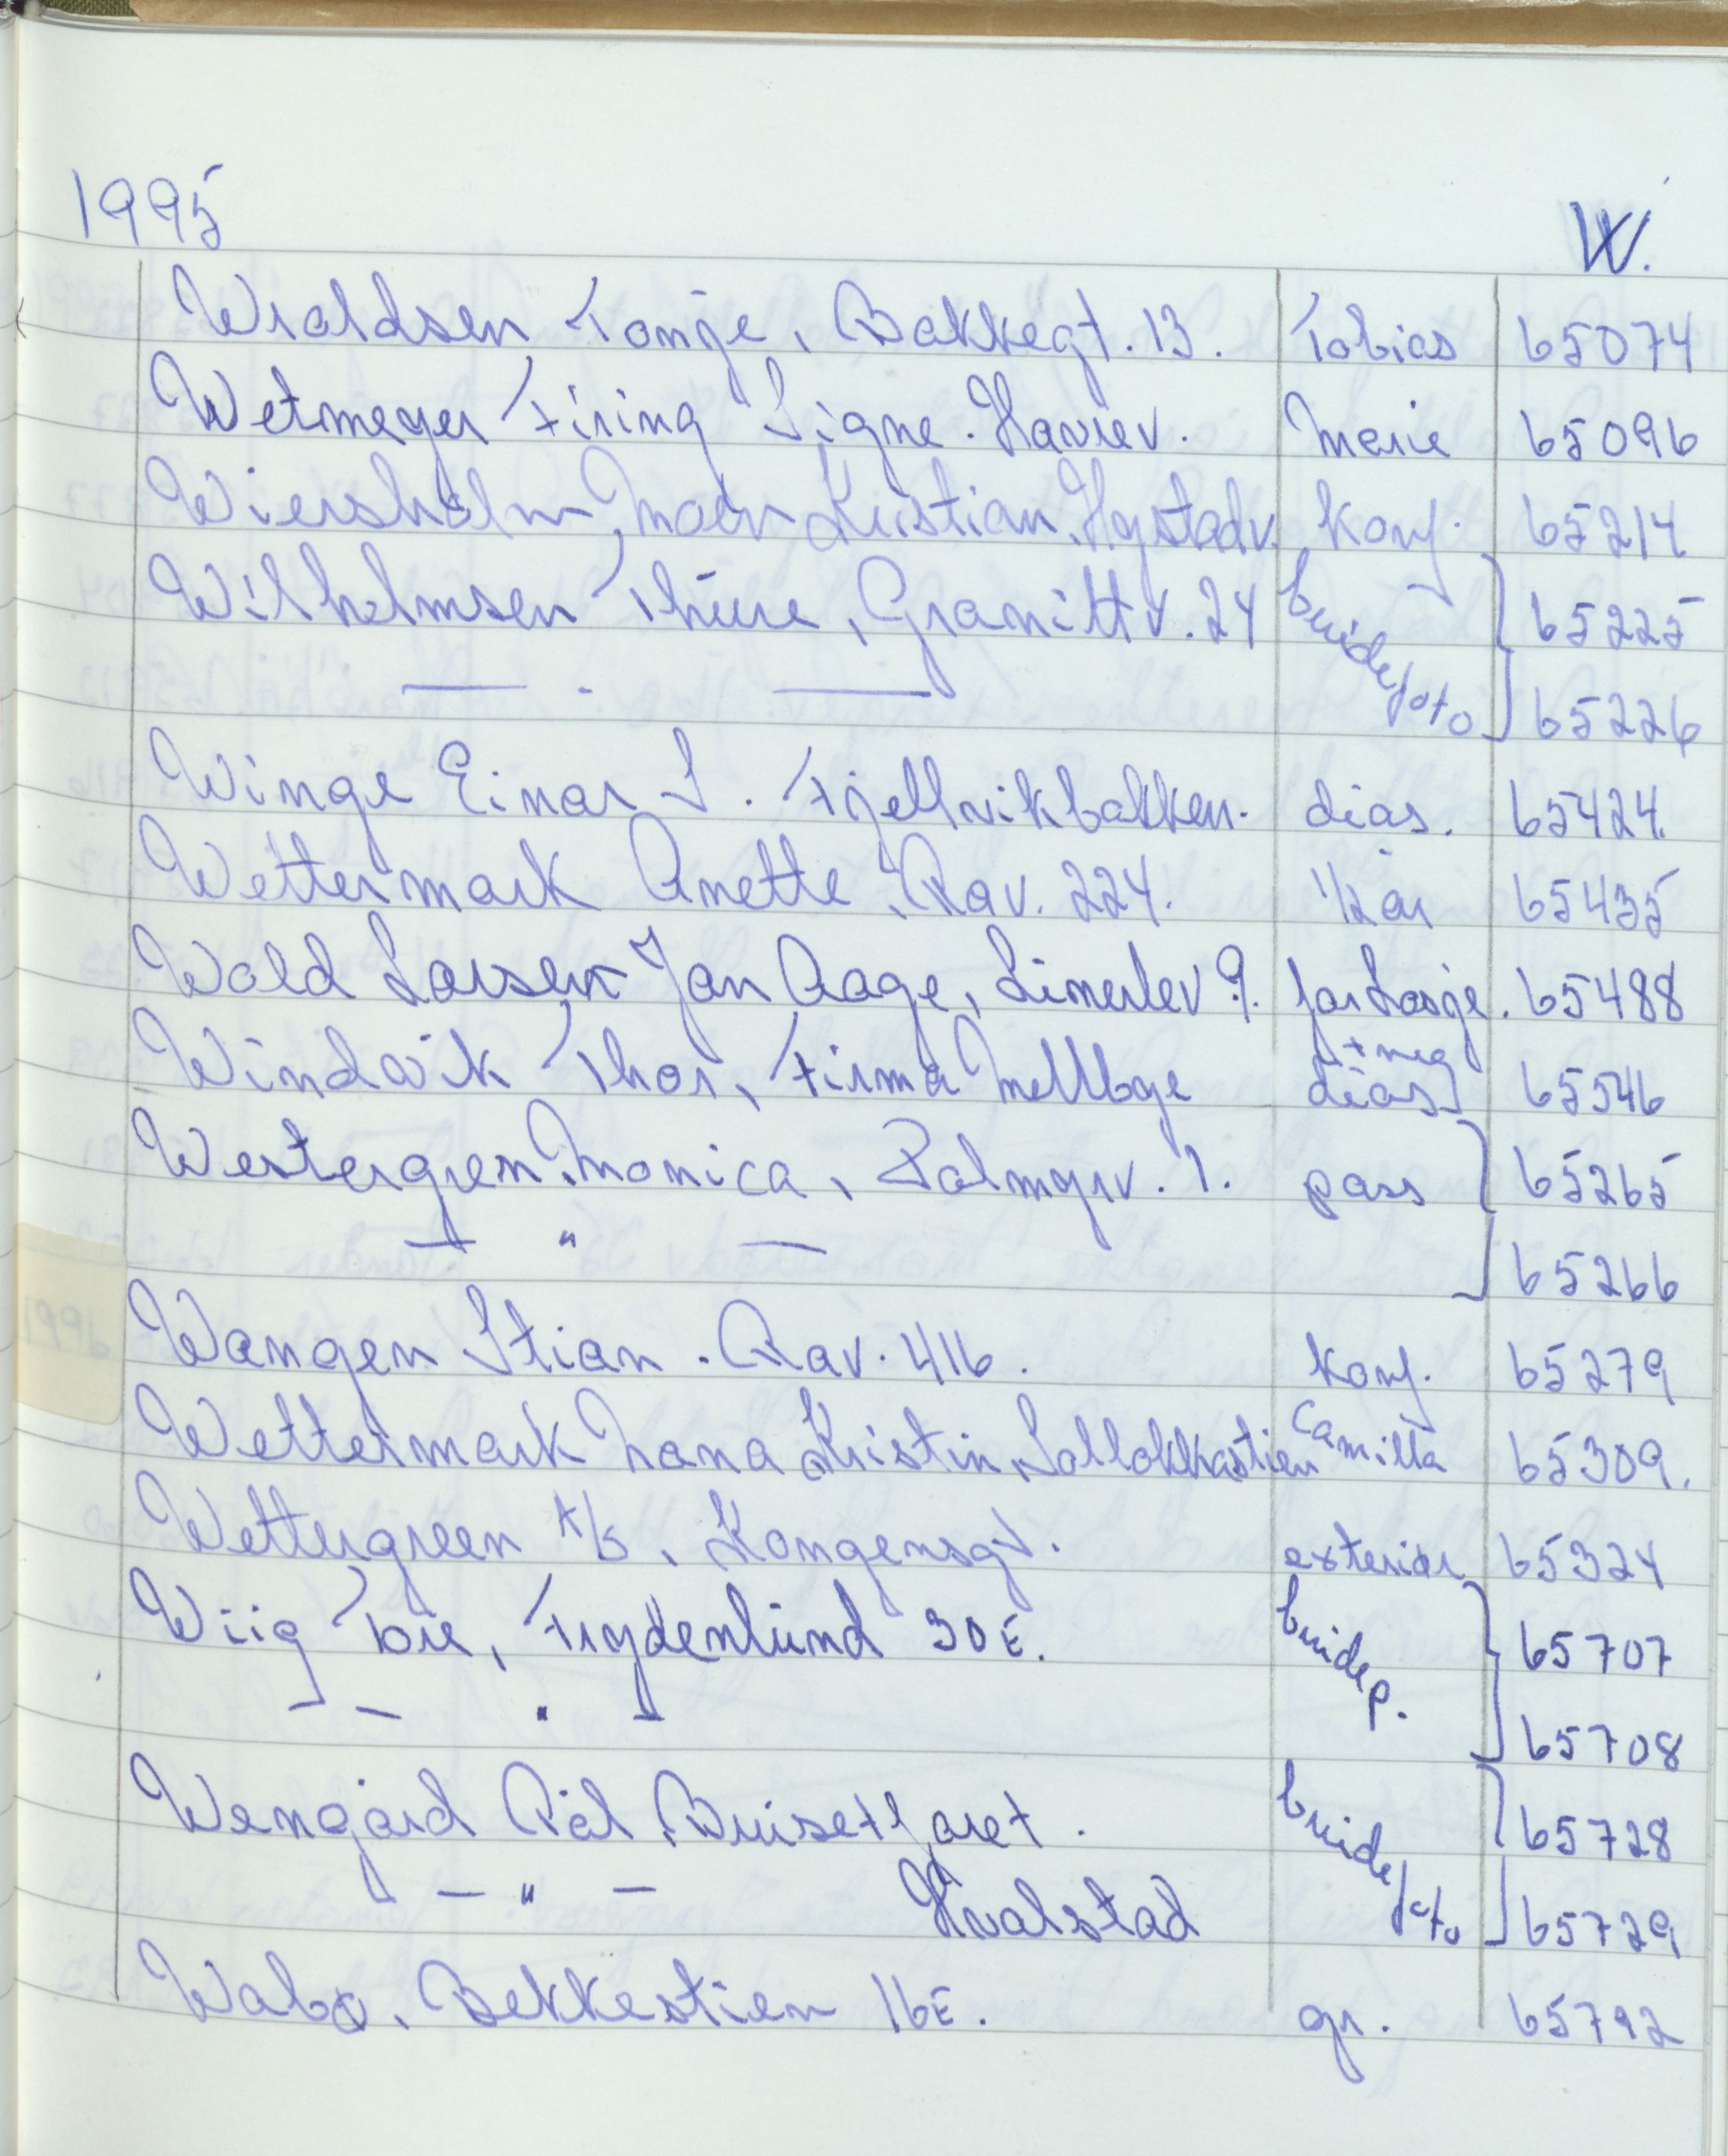 1995 W.
Wraldsen Tonje, Bakkegt. 13. Tobias 65074
Wetmeyer Firing Signe. Haviev. Marie 65096
Wiersholm, Mads Kristian. Hystadv. konf. 65214
Wilhelmsen Thure, Granittv. 24 brudefoto 65225
— . — 65226
Winge Einar S. Fjellvikbakken. dias. 65424.
Wettermark Anette, Rav. 224. 1/2 år 65435
Wold Larsen Jan Aage, Linerlev 9. for Losje. 65488
Windvik Thor, Firma Mellbye + neg dias 65546
Westergren Monica, Palmgrv. 1. pass 65265
— " — 65266
Wangen Stian. Rav. 416. konf. 65279
Wettermark Nana Kristin, Lollokkastien Camilla 65309.
Wettergreen A/S, Kongensgt. exteriør 65324
Wiig Tore, Frydenlund 30E. brudep. 65707
— — " — 65708
Wengård Pål, Bruset faret. brudefoto 65728
— " — Hvalstad 65729
Wabo, Bekkestien 16E. gr. 65792